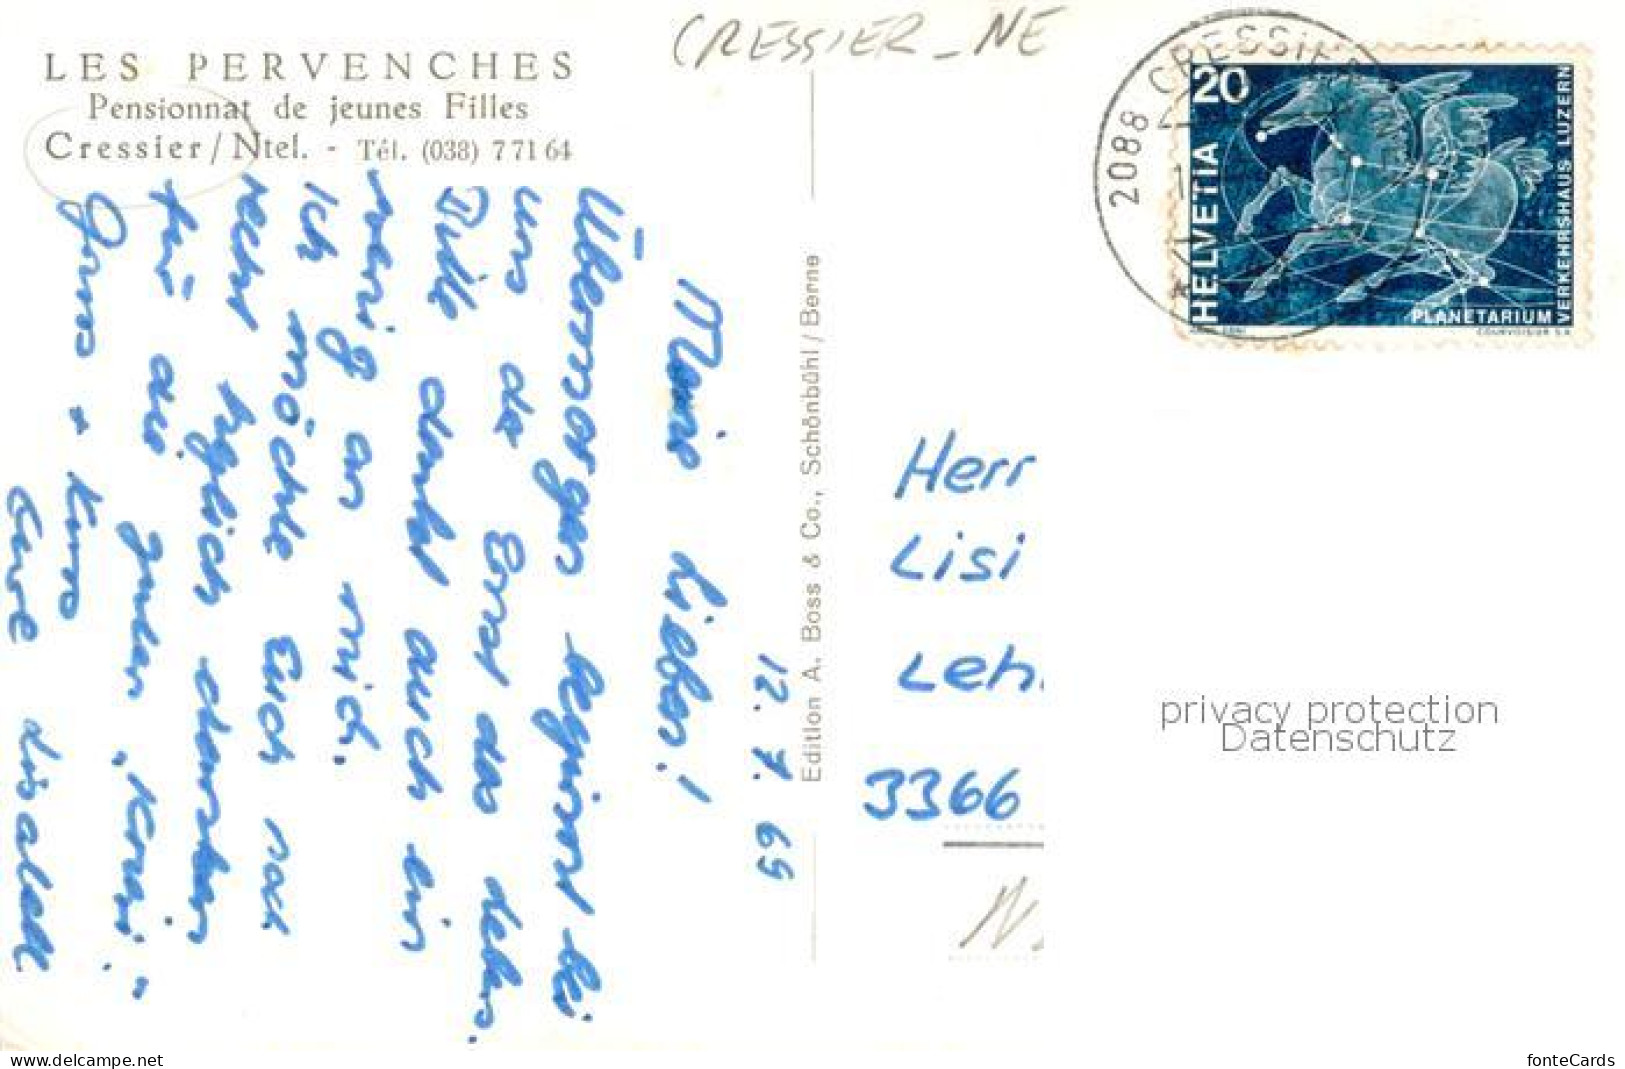 CRESSIER - NE
LES PERVENCHES
Pensionnat de jeunes Filles
Cressier / Ntel. - Tél. (038) 7 71 64
12. 7. 69
Meine Lieben!
Übermorgen beginnt bei
uns der Ernst des Lebens.
Dille denkt auch ein
wenig an mich.
Ich möchte Euch noch
recht herzlich danken
für die guten
Gruss + Kuss
Eure Lisabeth
Edition A. Boss & Co., Schönbühl / Berne
2088 CRESSIER
20
HELVETIA
PLANETARIUM
VERKEHRSHAUS LUZERN
COURVOISIER S.A.
Herr
Lisi
Leh
3366
privacy protection
Datenschutz
www.delcampe.net
fonteCards